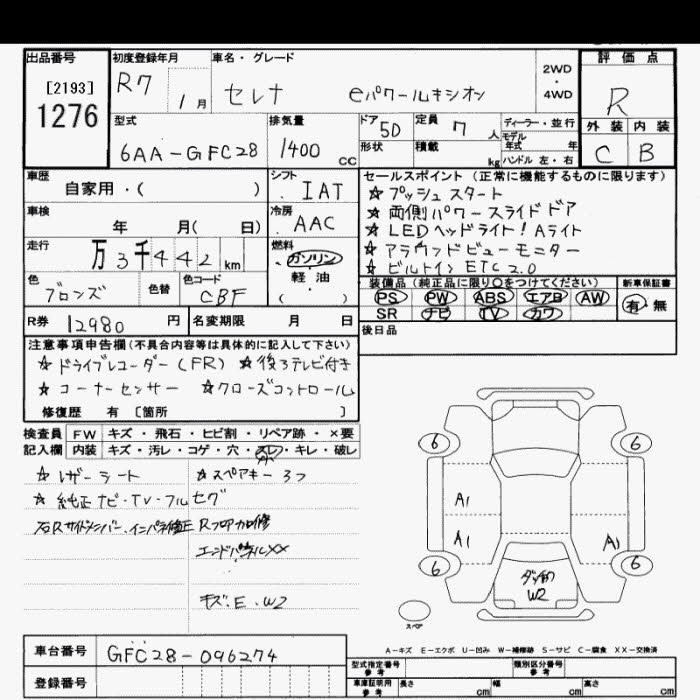 出品番号
[2193]
1276
初度登録年月
R7
1月
車名・グレード
セレナ eパワールキシオン
2WD
・
4WD
評価点
R
外装 内装
C B
型式
6AA-GFC28
排気量
1400 CC
ドア 5D
形状
定員 7 人
積載 kg
ディーラー・並行
モデル
年式 年
ハンドル 左・右
車歴
自家用・( )
シフト
IAT
車検
年 月( 日)
冷房
AAC
走行
万3千442km
燃料
ガソリン
軽・油
( )
色
ブロンズ
色替
色コード
CBF
R券 12980 円
名変期限 月 日
セールスポイント (正常に機能するものに限ります)
☆プッシュスタート
☆両側パワースライドドア
☆LEDヘッドライト!Aライト
☆アラウンドビューモニター
☆ビルトインETC2.0
装備品(純正品に限り○をつけてください)
PS PW ABS エアB AW
SR ナビ TV カワ
新車保証書
有・無
後日品
注意事項申告欄(不具合内容等は具体的に記入して下さい)
☆ドライブレコーダー(FR) ☆後ろテレビ付き
☆コーナーセンサー ☆クローズコントロール
修復歴 有 [箇所 ]
検査員 FW キズ・飛石・ヒビ割・リペア跡・×要
記入欄 内装 キズ・汚レ・コゲ・穴・スレ・キレ・破レ
☆レザーシート
☆スペアキー3つ
☆純正ナビ・TV・フルセグ
右Rサイドメンバー、インパネ修正 Rフロア加修
エンドパネルXX
キズ.E.W2
6
6
A1
A1
A1
6
6
W2
スペア
A-キズ E-エクボ U-凹み W-補修跡 S-サビ C-腐食 XX-交換済
車台番号 GFC28-096274
登録番号
型式指定番号
参考
類別区分番号
参考
車庫証明用
参考
長さ cm 幅 cm 高さ cm